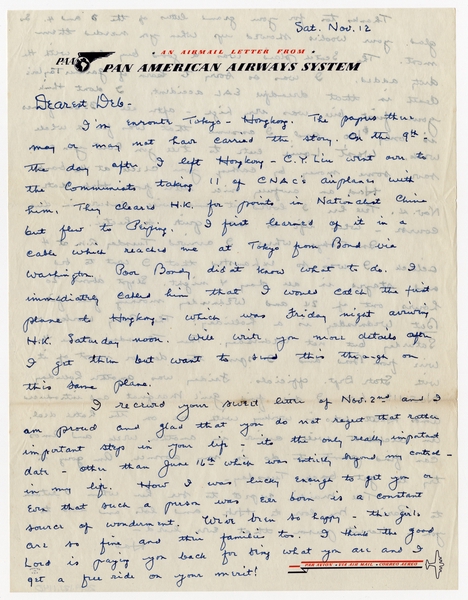 Sat. Nov. 12
AN AIRMAIL LETTER FROM
PAA PAN AMERICAN AIRWAYS SYSTEM
Dearest Deb-
I'm enroute Tokyo - Hongkong. The papers there
may or may not have carried the story. On the 9th -
the day after I left Hongkong - C.Y. Liu went over to
the Communists taking 11 of CNAC's airplanes with
him. They cleared H.K. for points in Nationalist China
but flew to Peiping. I first learned of it in a
cable which reached me at Tokyo from Bond via
Washington. Poor Bondy, didnt know what to do. I
immediately cabled him that I would catch the first
plane to Hongkong - which was Friday night arriving
H.K. Saturday noon. Will write you more details after
I get there but want to send this through on
this same plane.
I received your sweet letter of Nov. 2nd and I
am proud and glad that you do not regret that rather
important step in your life - its the only really important
date - other than June 16th which was entirely beyond my control -
in my life. How I was lucky enough to get you or
even that such a person was ever born is a constant
source of wonderment. We've been so happy - the girls
are so fine and their families too. I think the good
Lord is paying you back for being what you are and I
get a free ride on your merit!
PAR AVION · VIA AIR MAIL · CORREO AEREO